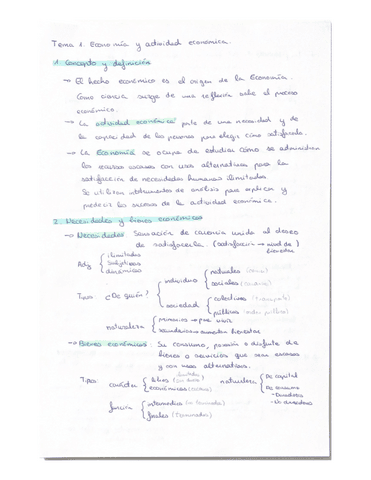 Tema 1. Economía y actividad económica.
1. Concepto y definición
→ El hecho económico es el origen de la Economía.
Como ciencia surge de una reflexión sobre el proceso
económico.
→ La actividad económica parte de una necesidad y de
la capacidad de las personas para elegir cómo satisfacerla.
→ La Economía se ocupa de estudiar cómo se administran
los recursos escasos con usos alternativos para la
satisfacción de necesidades humanas ilimitadas.
Se utilizan instrumentos de análisis para explicar y
predecir los sucesos de la actividad económica.
2. Necesidades y bienes económicos
→ Necesidades: Sensación de carencia unida al deseo
de satisfacerla. (satisfacción → nivel de bienestar)
Adj { ilimitadas
subjetivas
dinámicas
Tipos: ¿De quién? { individuo { naturales (comer)
sociales
sociedad { colectivas (transporte)
públicas (orden público)
naturaleza { primarias → para vivir
secundarias → aumentar bienestar
→ Bienes económicos: Su consumo, posesión o disfrute de
bienes o servicios que son escasos
y con usos alternativos.
Tipos: carácter { libres
económicos (escasos)
naturaleza { De capital
De consumo
- Duradero
- No duradero
función { intermedios
finales (terminados)